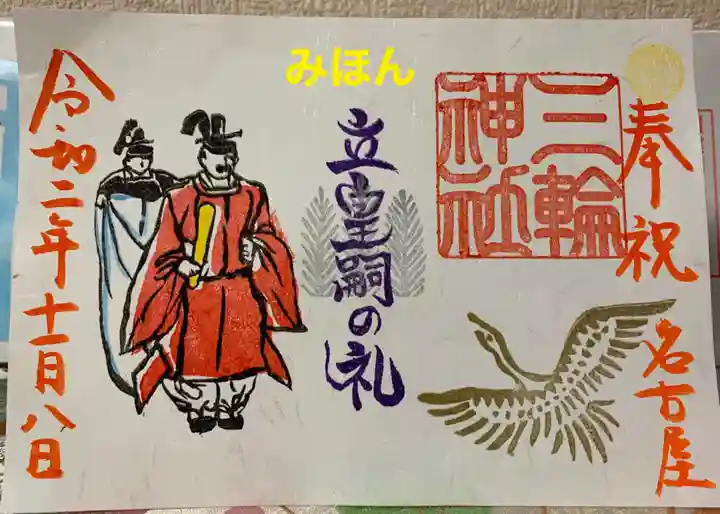 奉祝
名古屋
三輪
神社
みほん
立皇嗣の礼
令和二年十一月八日